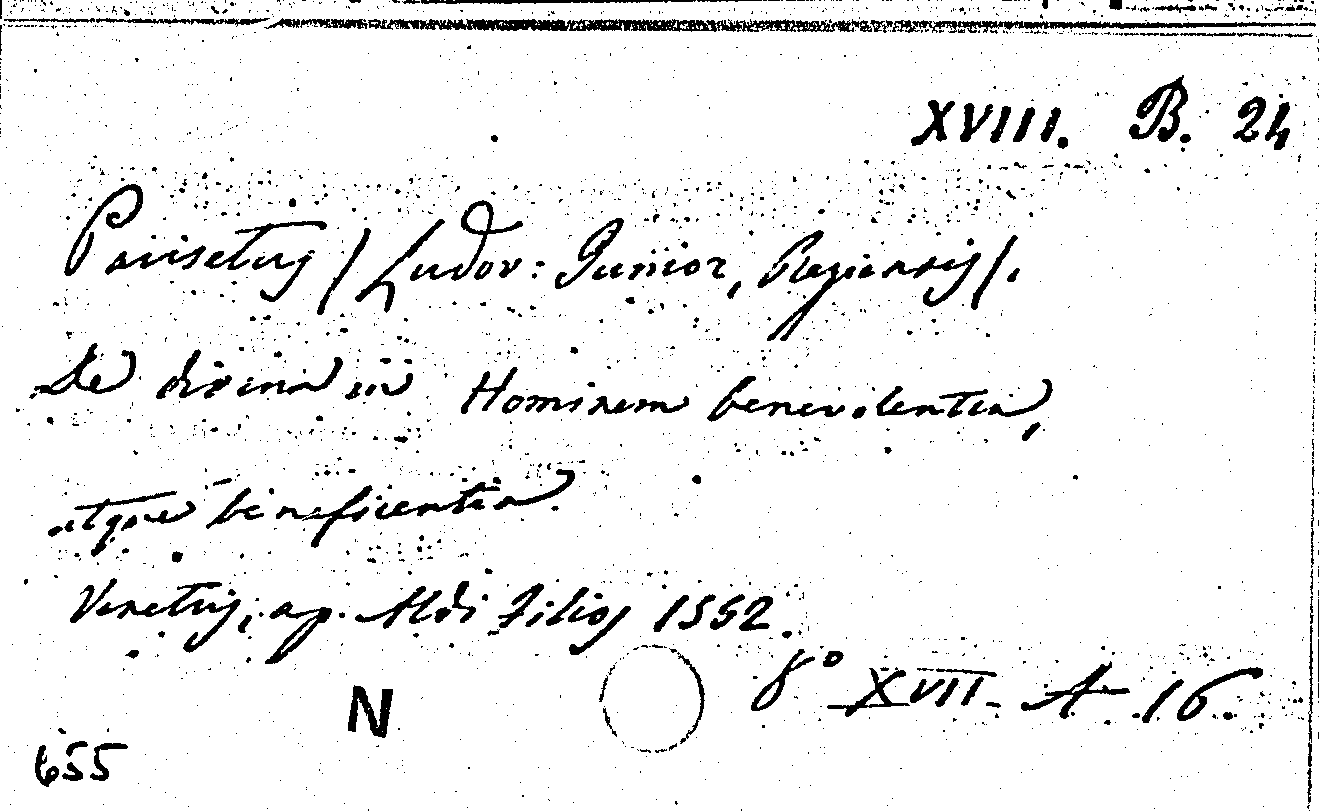 XVIII. B. 24
Parisetus / Ludov: Junior, Regiensis /.
De divina in Hominem benevolentia,
atque beneficentia.
Venetiis, ap. Aldi Filios 1552.
8° XVII A 16.
N
655